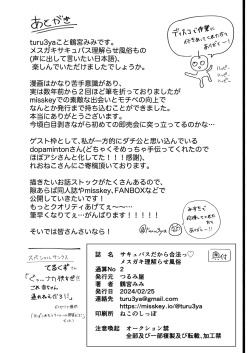 あとがき
turu3yaこと鶴宮みみです。
メスガキサキュバス理解らせ風俗もの
(声に出して言いたい日本語)、
楽しんでいただけましたでしょうか。
漫画はかなり苦手意識があり、
実は数年前から2回ほど筆を折っておりましたが
misskeyでの素敵な出会いとモチベの向上で
なんとか発行まで持ち込むことができました。
本当にありがとうございます。
今頃白目剥きながら初めての即売会に突っ立ってるのかな…
ゲスト枠として、私が一方的にダチ公と思い込んでいる
dopamintonさん(どちゃくそめっちゃ手伝ってくれたので
ほぼアシさんと化してた！！！感謝)、
れおねこさんにご寄稿頂いております。
描きたいお話ストックがたくさんあるので、
隙あらば同人誌やmisskey、FANBOXなどで
公開していきたいです！
もっとクオリティあげてぇ～～…
筆早くなりてぇ…がんばります！！！！！
それでは皆さんさいなら！
@turu3ya
スペシャルサンクス
誌　名　サキュバスだから合法っ♡
メスガキ理解らせ風俗
通算No　2
発行元　つるみ屋
著　者　鶴宮みみ
発行日　2024/02/25
連絡先　turu3ya@gmail.com
https://misskey.io/@turu3ya
印刷所　ねこのしっぽ
注意喚起　オークション禁
全部及び一部複製及び転載,加工禁